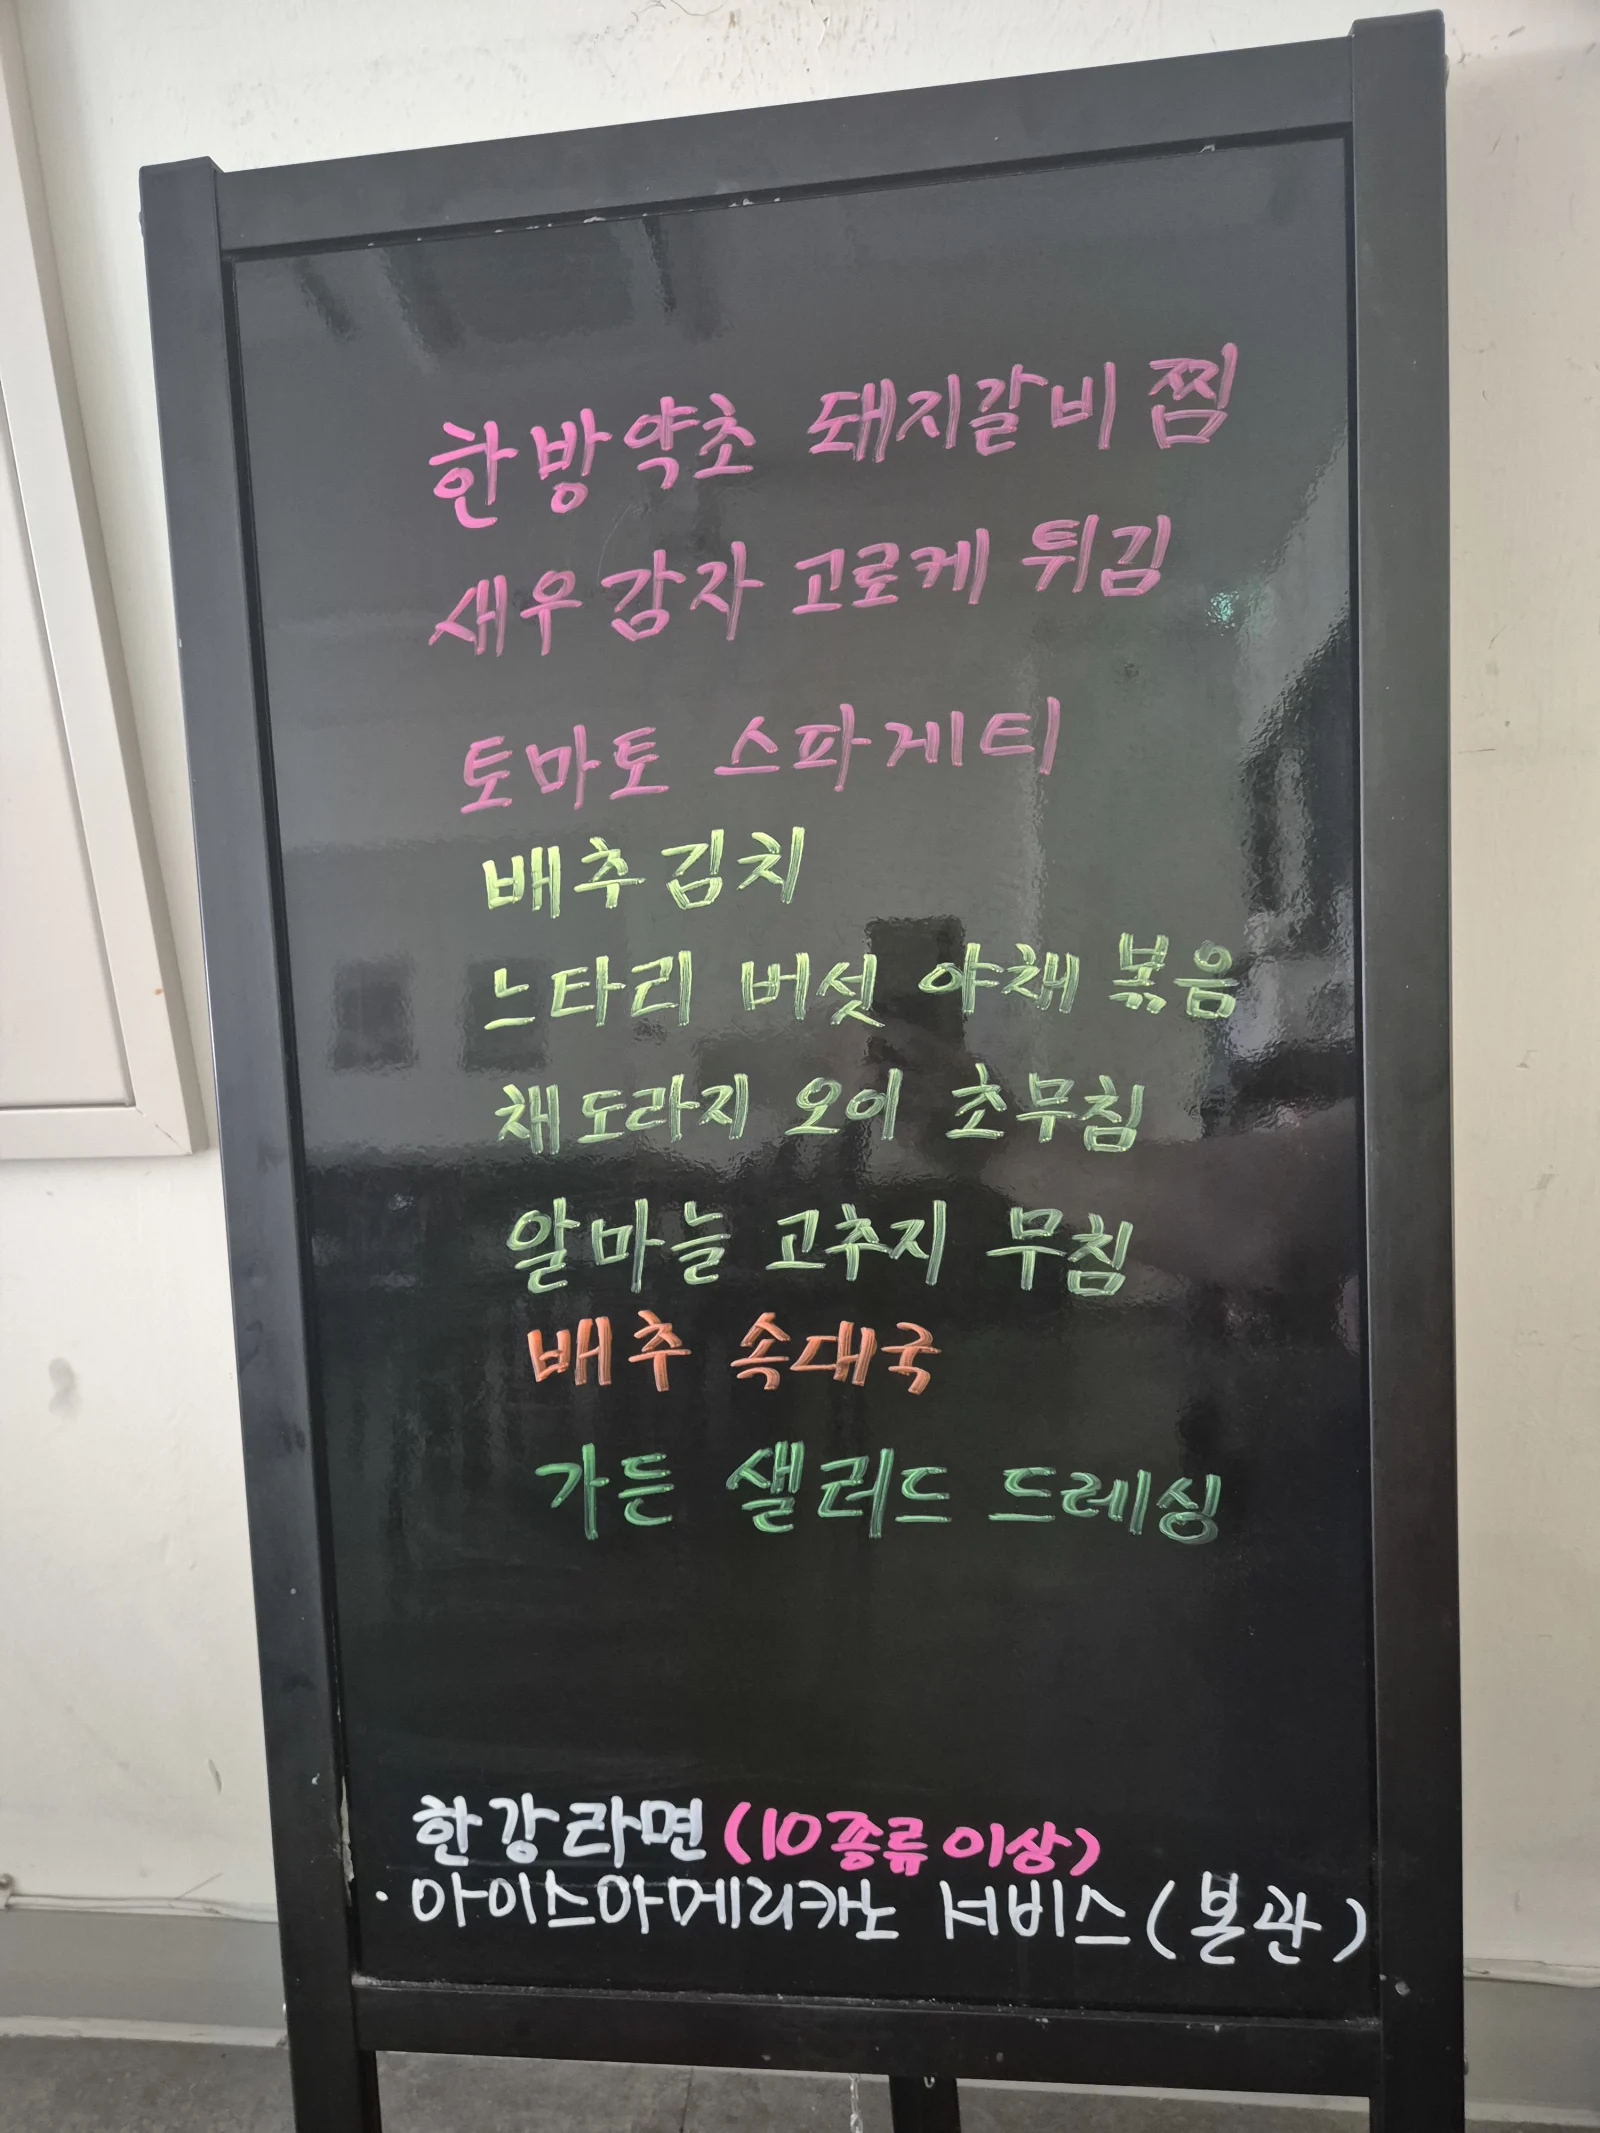 한방약초 돼지갈비 찜
새우감자 고로케 튀김
토마토 스파게티
배추김치
느타리 버섯 야채 볶음
채도라지 오이 초무침
알마늘 고추지 무침
배추 속대국
가든 샐러드 드레싱
한강라면 (10종류이상)
·아이스아메리카노 서비스 (본관)